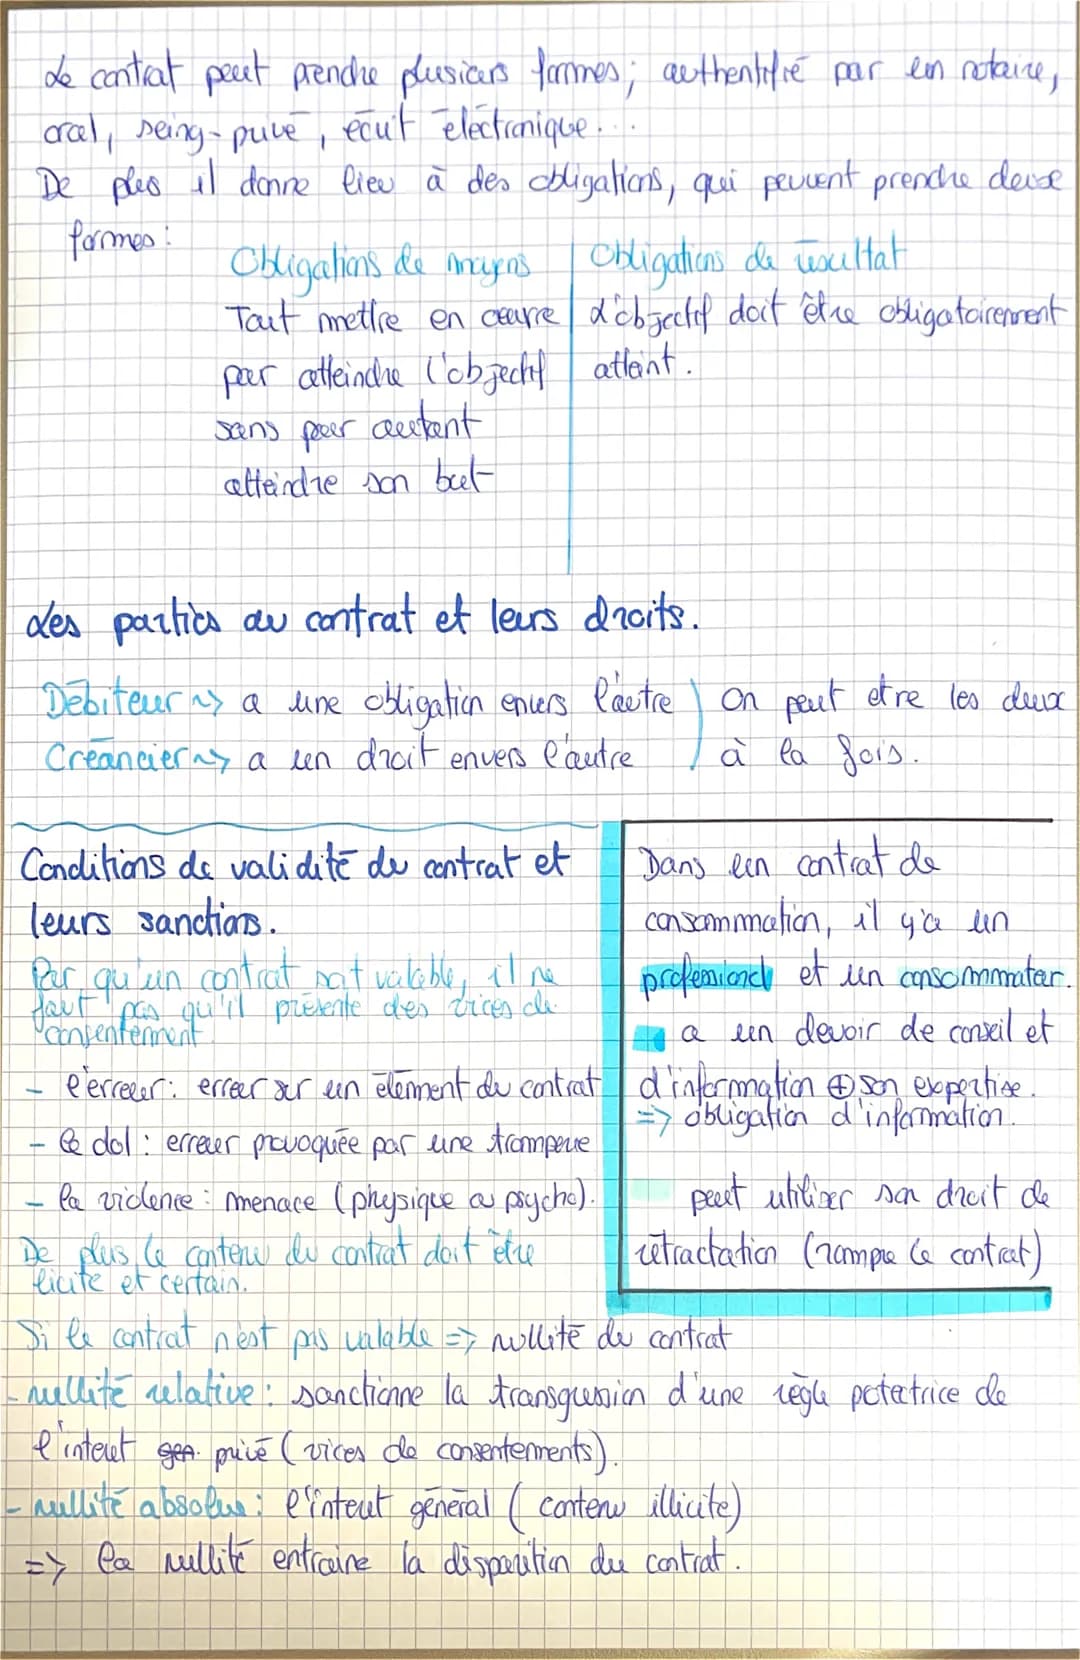 Le contrat peut prendre plusieurs formes; authentifié par un notaire,
oral, seing-privé, écrit électronique...
De plus il donne lieu à des obligations, qui peuvent prendre deux
formes:
Obligations de moyens
Tout mettre en œuvre
pour atteindre l'objectif
sans pour autant
atteindre son but
Obligations de résultat
L'objectif doit être obligatoirement
atteint.
Les parties au contrat et leurs droits.
Débiteur ~> a une obligation envers l'autre
Créancier ~> a un droit envers l'autre
On peut etre les deux
à la fois.
Conditions de validité du contrat et
leurs sanctions.
Pour qu'un contrat soit valable, il ne
faut pas qu'il présente des vices de
consentement
- l'erreur: erreur sur un élément du contrat
- le dol: erreur provoquée par une tromperie
- la violence: menace (physique ou psycho).
De plus, le contenu du contrat doit être
licite et certain.
Dans un contrat de
consommation, il y'a un
professionel et un consommateur.
a un devoir de conseil et
d'information ⊕ son expertise.
=> obligation d'information.
peut utiliser son droit de
rétractation (rompre le contrat)
Si le contrat n'est pas valable => nullité du contrat
- nullité relative: sanctionne la transgression d'une règle potectrice de
l'interet privé (vices de consentements).
- nullité absolue: l'interet général (contenu illicite)
=> la nullité entraine la disparition du contrat.